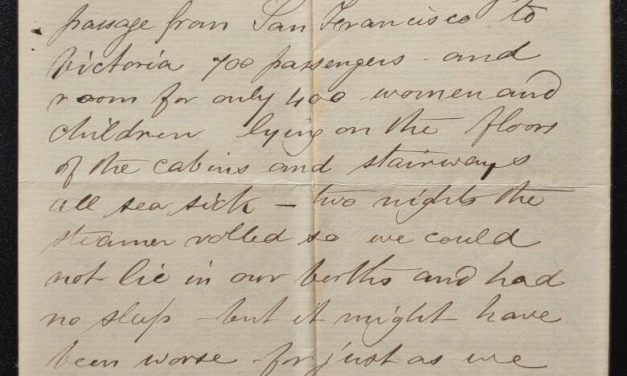 passage from San Francisco to
Victoria 700 passengers and
room for only 400 women and
children lying on the floors
of the cabins and stairways
all sea sick – two nights the
steamer rolled so we could
not lie in our berths and had
no sleep – but it might have
been worse – for just as we